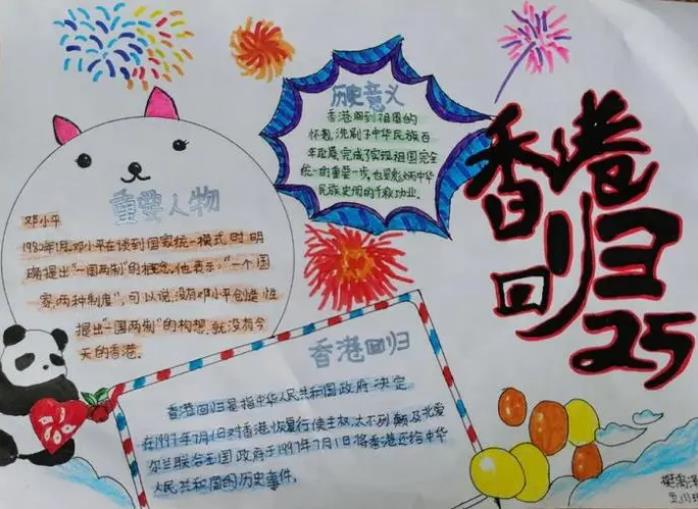 香港
回归
25
历史意义
香港回到祖国的
怀抱,洗刷了中华民族百
年耻辱,完成了实现祖国完全
统一的重要一步,也是彪炳中华
民族史册的千秋功业.
重要人物
邓小平
1982年1月,邓小平在谈到国家统一模式时,明
确提出"一国两制"的概念,他表示:"一个国
家,两种制度",可以说,没有邓小平创造性
提出"一国两制"的构想,就没有今
天的香港.
香港回归
香港回归是指中华人民共和国政府决定
在1997年7月1日对香港恢复行使主权,大不列颠及北爱
尔兰联合王国政府于1997年7月1日将香港还给中华
人民共和国的历史事件.